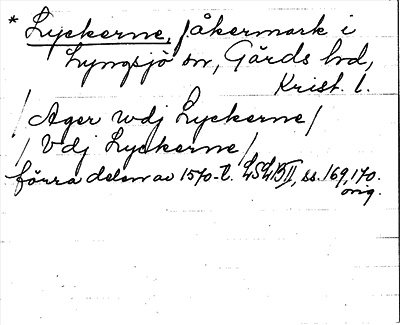 * Lyckerne, åkermark i
Lyngsjö sn, Gärds hd,
Krist. l.
/Ager wdj Lyckerne/
/Vdj Lyckerne/
förra delen av 1570-t. LSLB II, ss. 169, 170.
orig.